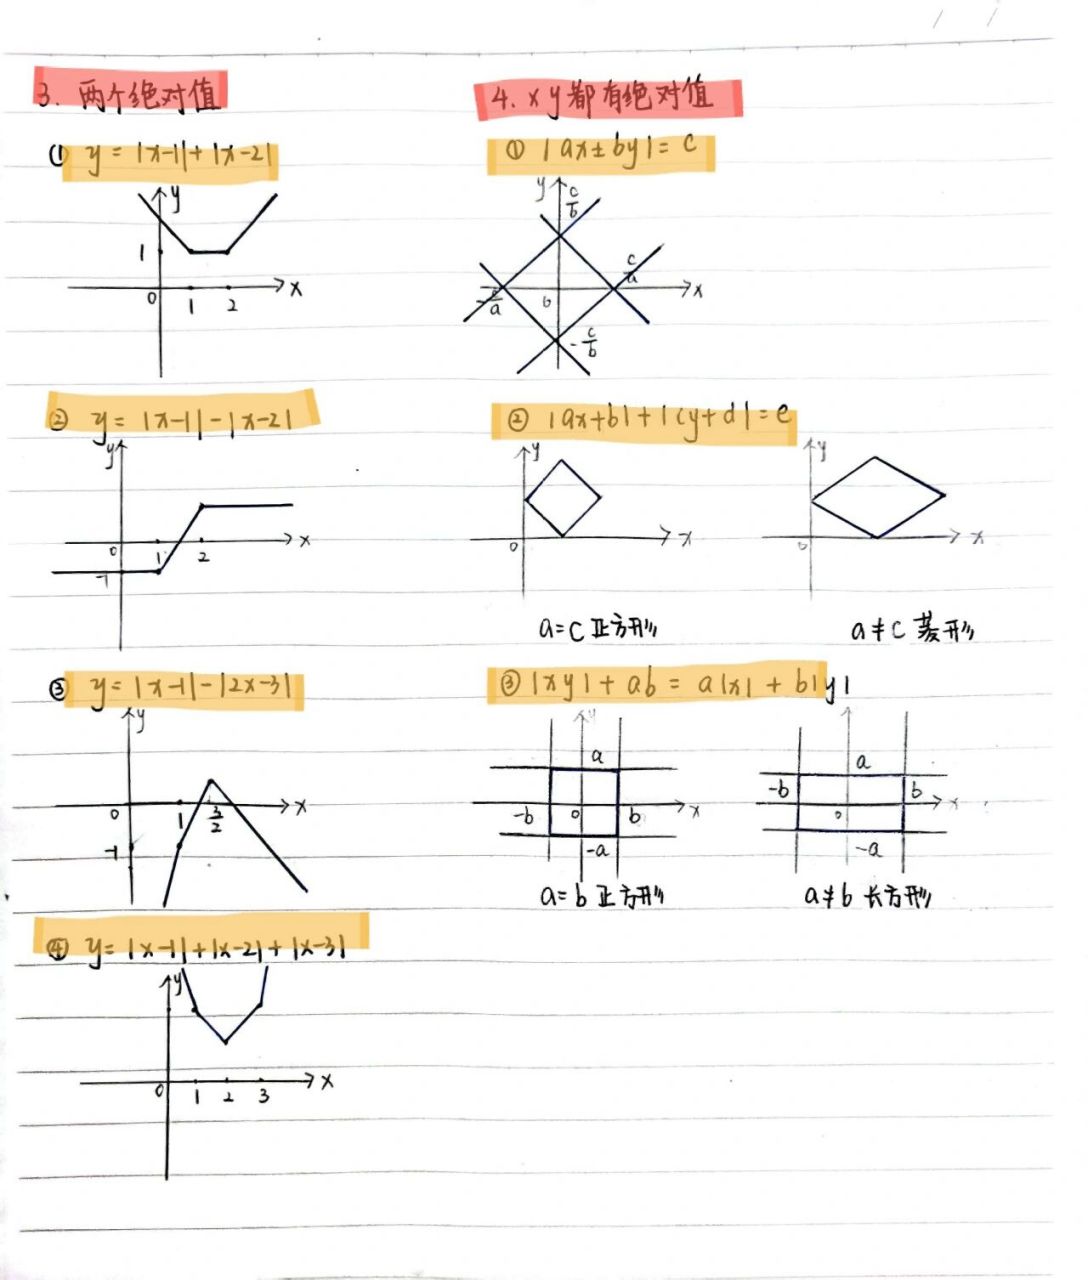 3. 两个绝对值
① y = |x-1|+|x-2|
y
1
0 1 2 x
② y = |x-1|-|x-2|
y
0 1 2 x
-1
③ y = |x-1|-|2x-3|
y
0 1 3/2 x
-1
④ y = |x-1|+|x-2|+|x-3|
y
0 1 2 3 x
4. x y都有绝对值
① |ax±by| = c
y c/b
c/a
-c/a 0 x
-c/b
② |ax+b|+|cy+d| = e
y y
0 x 0 x
a=c 正方形 a≠c 菱形
③ |xy| + ab = a|x| + b|y|
y
a a
-b 0 b x -b 0 b x
-a -a
a=b 正方形 a≠b 长方形